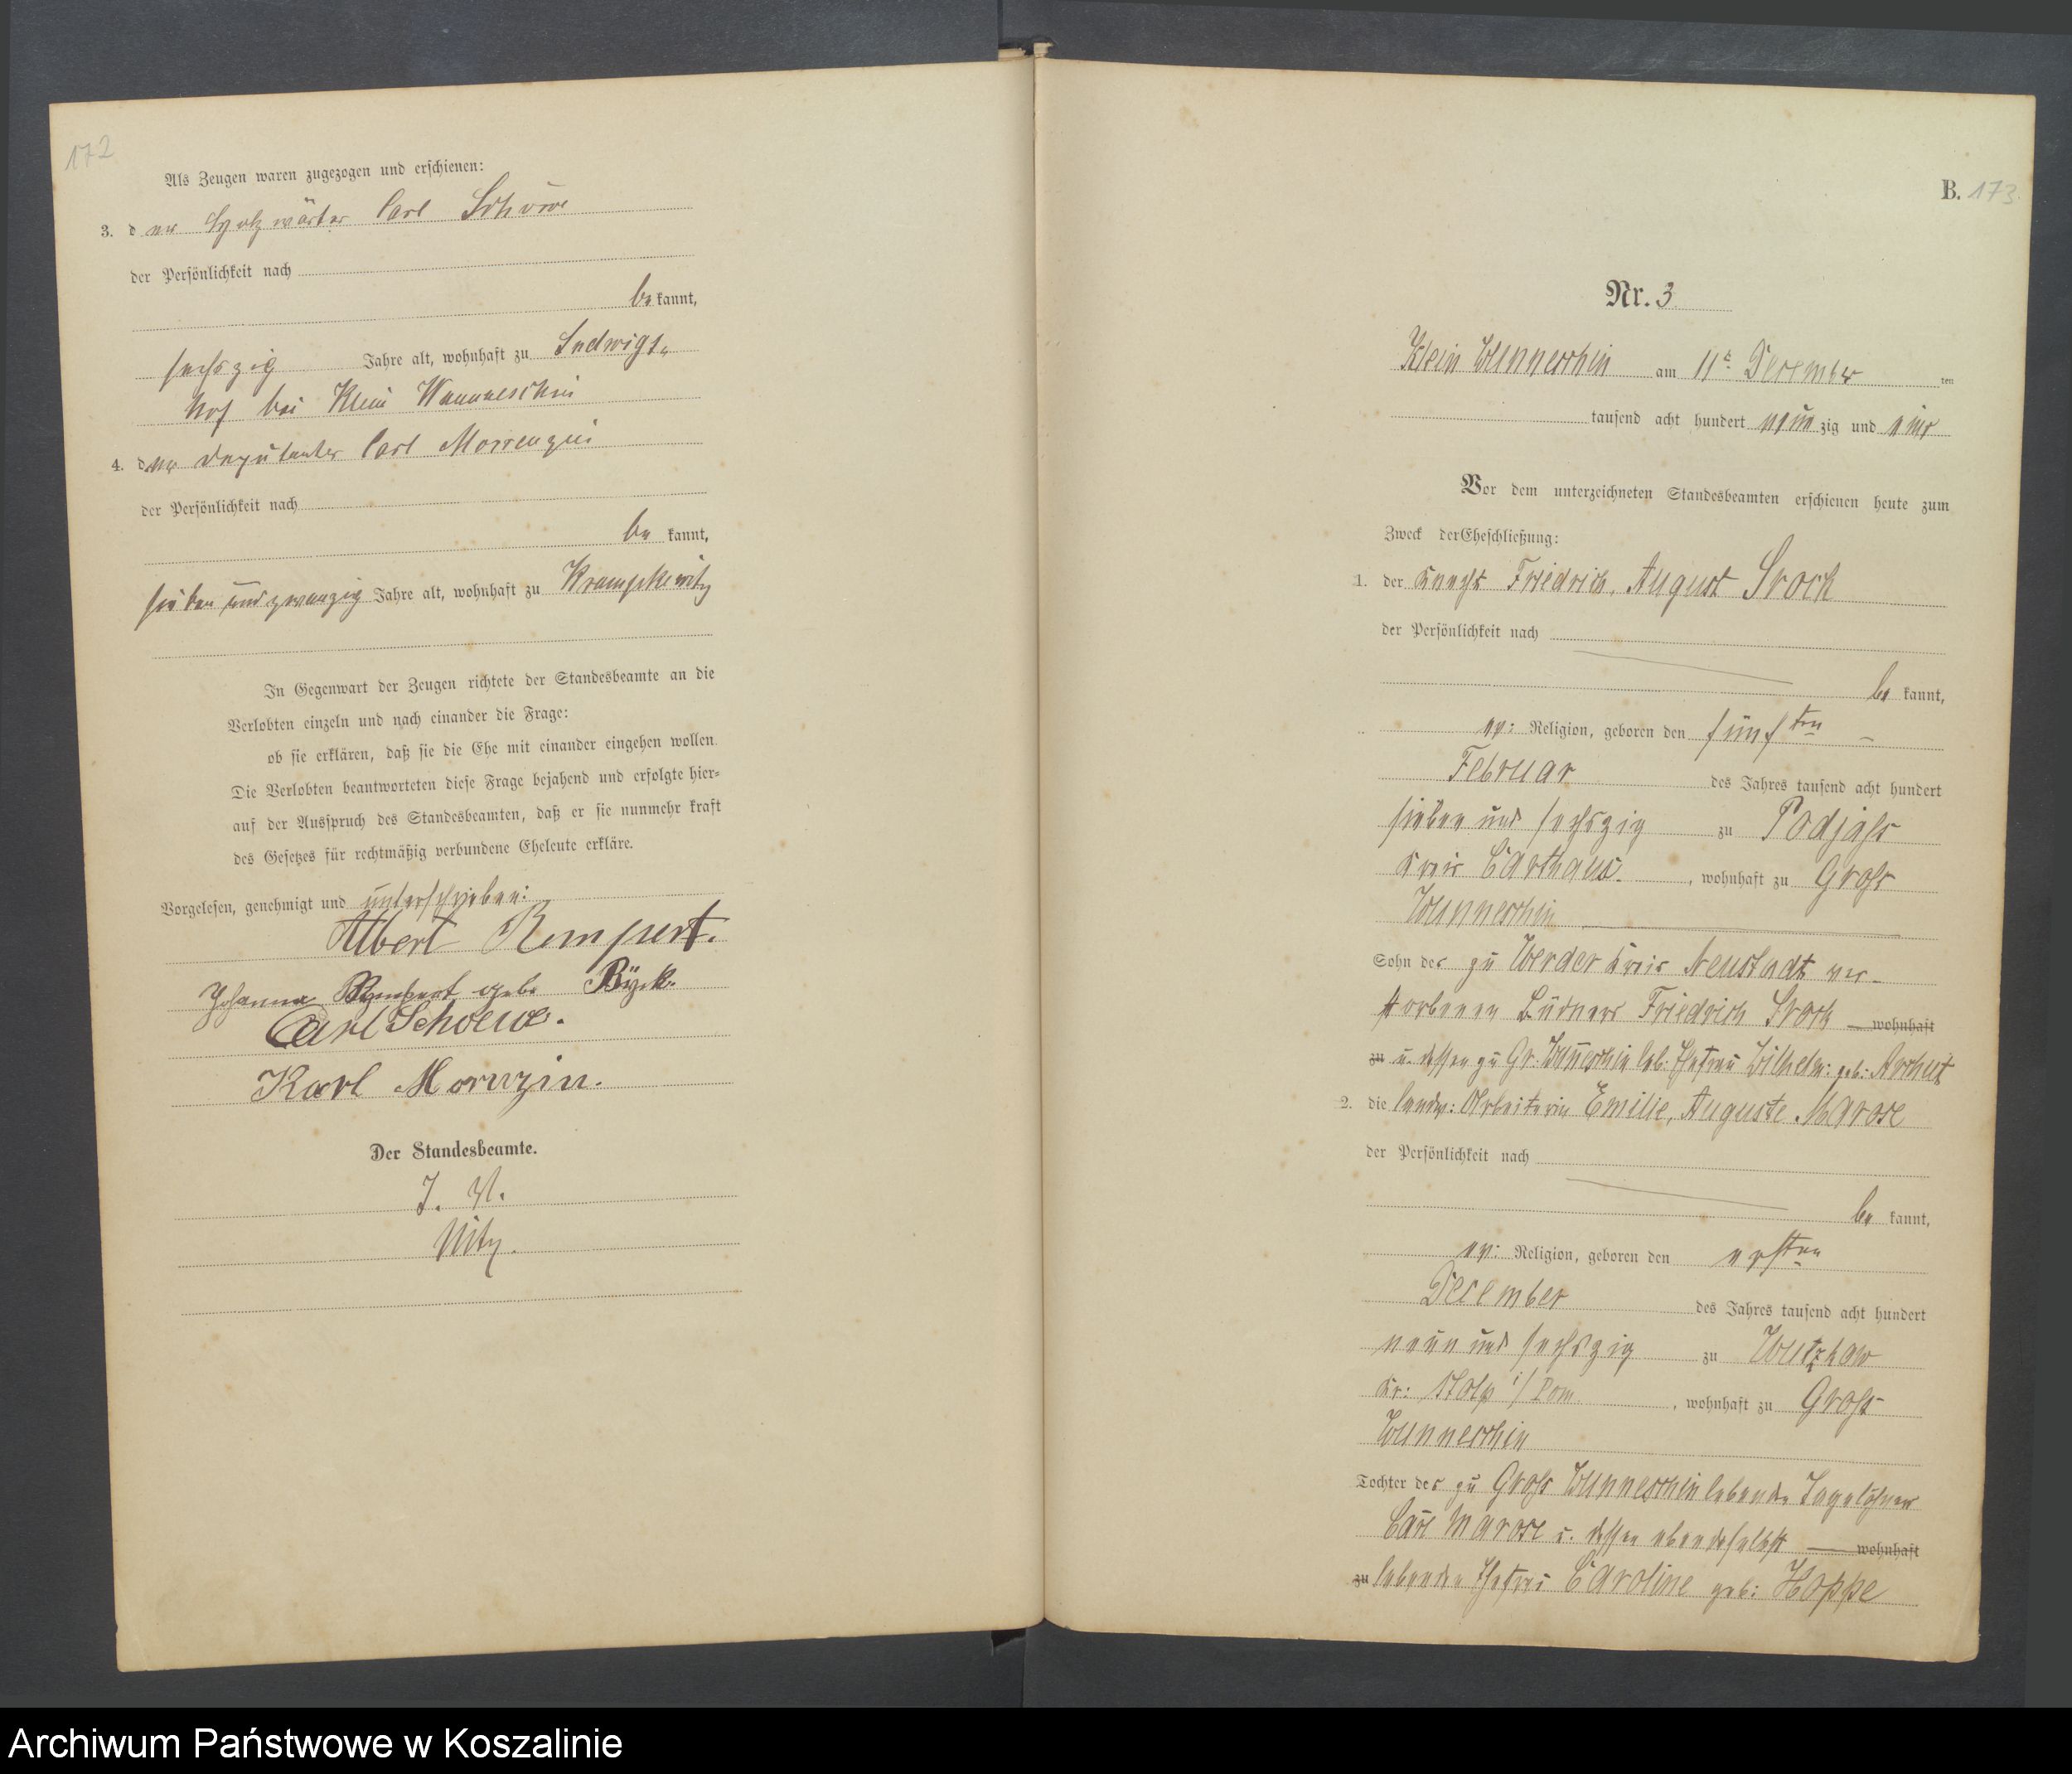 172
Als Zeugen waren zugezogen und erschienen:
3. der Holzwärter Carl Schöwe
der Persönlichkeit nach
be kannt,
sechszig Jahre alt, wohnhaft zu Ludwigs-
hof bei Klein Wunneschin
4. der Deputant Carl
der Persönlichkeit nach
be kannt,
sieben und zwanzig Jahre alt, wohnhaft zu Krampkewitz
In Gegenwart der Zeugen richtete der Standesbeamte an die
Verlobten einzeln und nach einander die Frage:
ob sie erklären, daß sie die Ehe mit einander eingehen wollen.
Die Verlobten beantworteten diese Frage bejahend und erfolgte hier-
auf der Ausspruch des Standesbeamten, daß er sie nunmehr kraft
des Gesetzes für rechtmäßig verbundene Eheleute erkläre.
Vorgelesen, genehmigt und unterschrieben:
Albert Rempert.
Johanna Rempert geb.
Carl Schoewe.
Karl Moruzin.
Der Standesbeamte.
J. V.
Nitz.
B. 173.
Nr. 3
Klein Wunneschin am 11t December ten
tausend acht hundert neun zig und eins
Vor dem unterzeichneten Standesbeamten erschienen heute zum
Zweck der Eheschließung:
1. der Knecht Friedrich, August Srock
der Persönlichkeit nach
be kannt,
ev: Religion, geboren den fünften
Februar des Jahres tausend acht hundert
sieben und sechszig zu Podjass
Kreis Carthaus, wohnhaft zu Gross
Wunneschin
Sohn des zu Werder Kreis Neustadt ver-
storbenen Büdners Friedrich Srock wohnhaft
zu u. dessen zu Gr. Wunneschin leb. Ehefrau Wilhelm: geb:
2. die landw: Arbeiterin Emilie, Auguste Marose
der Persönlichkeit nach
be kannt,
ev: Religion, geboren den ersten
December des Jahres tausend acht hundert
neun und sechszig zu Wutzkow
Kr: Stolp i/Pom., wohnhaft zu Gross
Wunneschin
Tochter des zu Gross Wunneschin lebende Tagelöhner
Carl Marose u. dessen ebendaselbst wohnhaft
zu lebenden Ehefrau Caroline geb: Hoppe
Archiwum Państwowe w Koszalinie